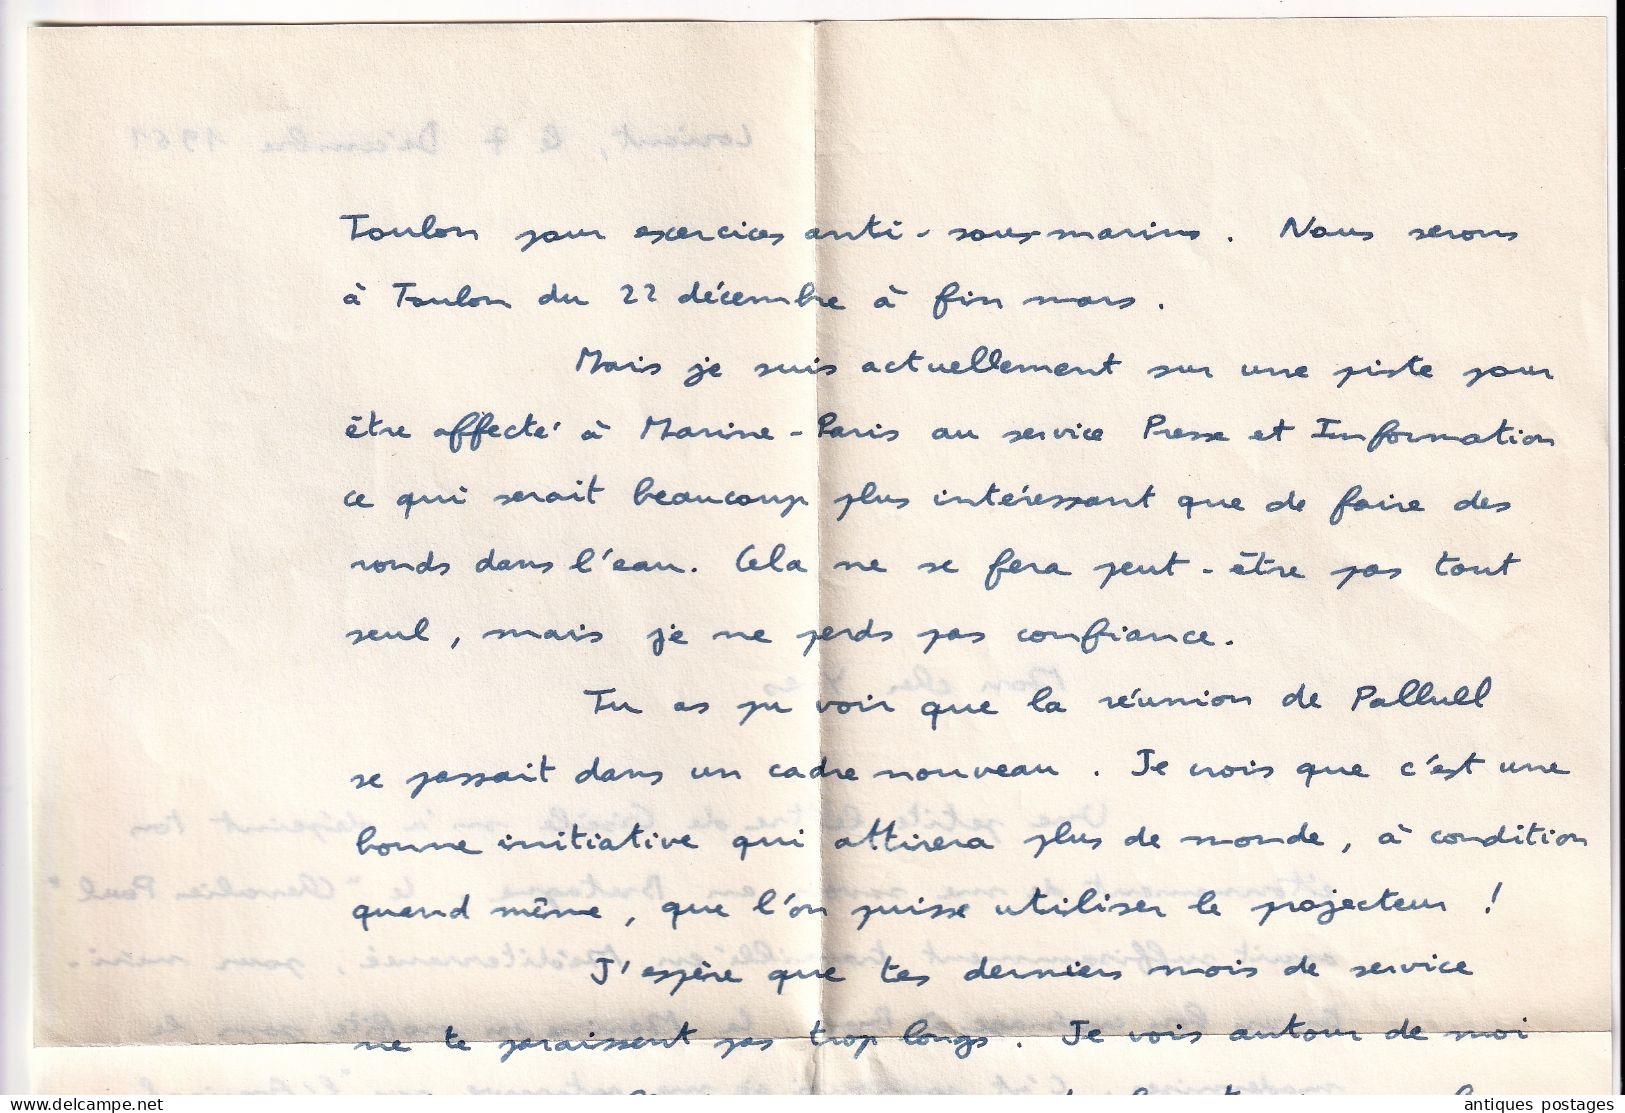 Toulon pour exercices anti-sous-marins. Nous serons
à Toulon du 22 décembre à fin mars.
Mais je suis actuellement sur une piste pour
être affecté à Marine-Paris au service Presse et Information
ce qui serait beaucoup plus intéressant que de faire des
ronds dans l'eau. Cela ne se fera peut-être pas tout
seul, mais je ne perds pas confiance.
Tu as pu voir que la réunion de Pallull
se passait dans un cadre nouveau. Je crois que c'est une
bonne initiative qui attirera plus de monde, à condition
quand même, que l'on puisse utiliser le projecteur !
J'espère que tes derniers mois de service
ne te paraissent pas trop longs. Je vois autour de moi
delcampe.net
antiques postages